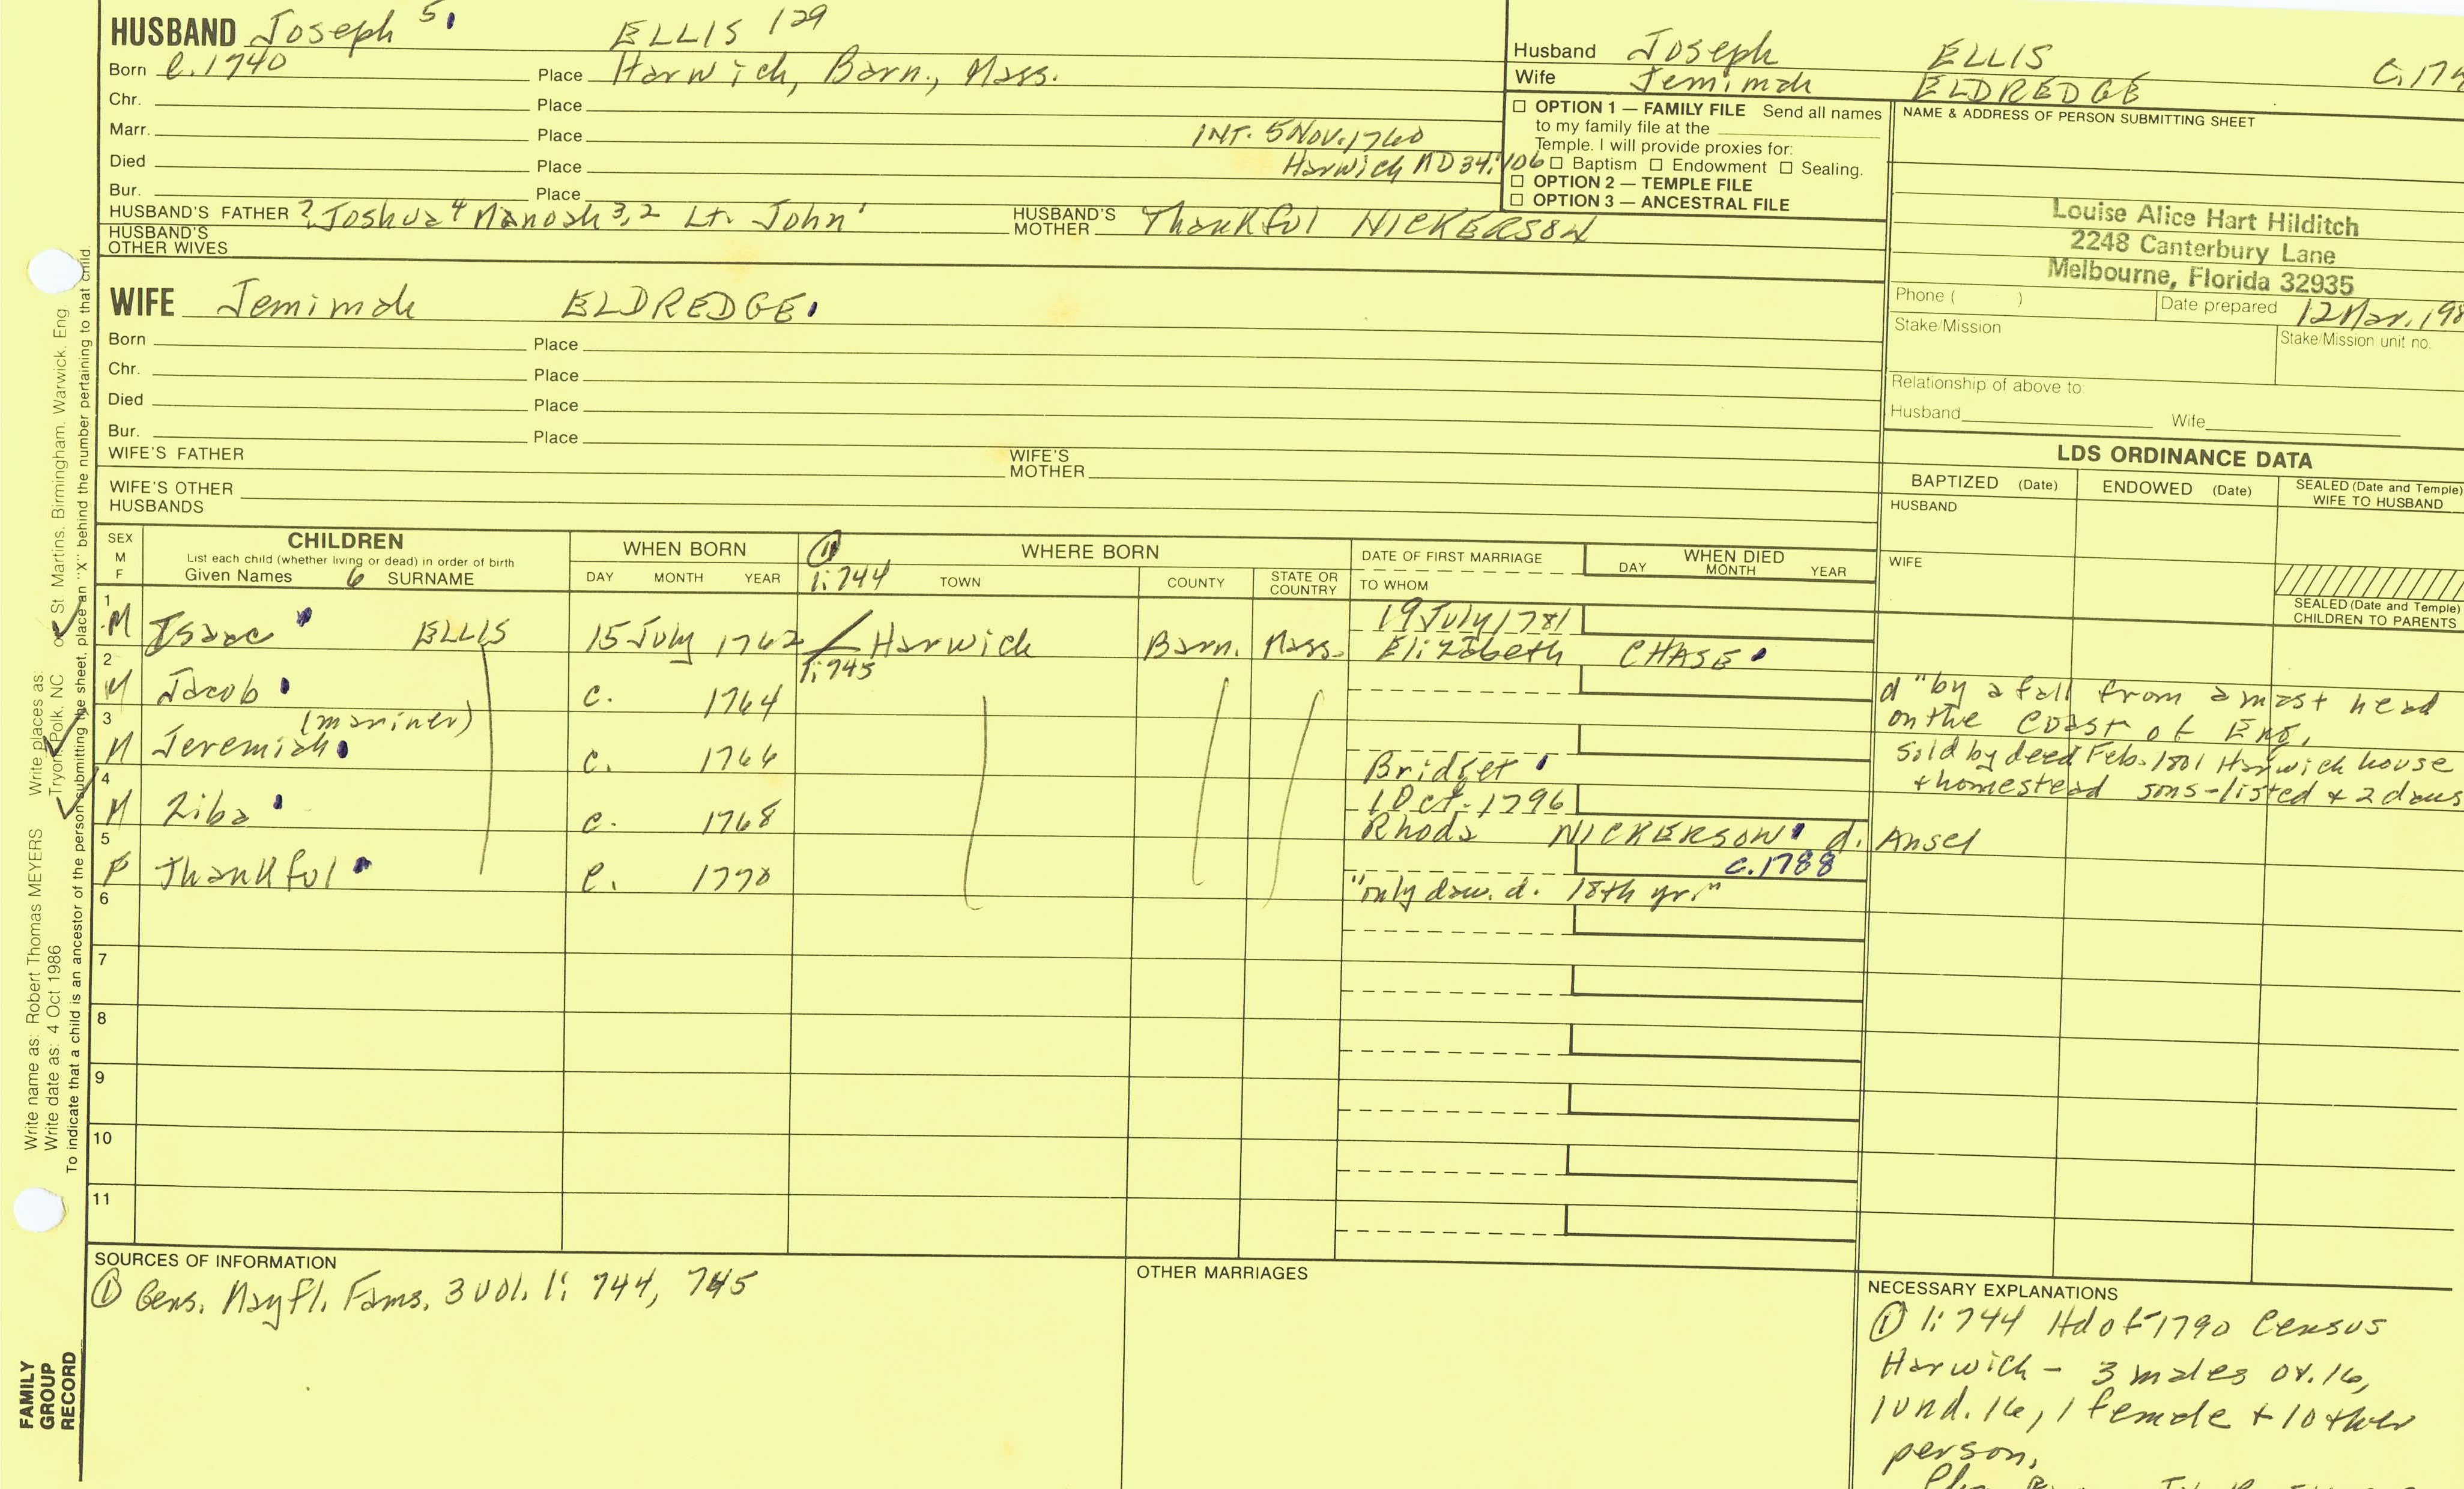 HUSBAND Joseph 5. ELLIS 129
Born c. 1740 Place Harwich, Barn., Mass.
Chr. Place
Marr. Place INT. 5 Nov. 1760
Died Place Harwich MD 34:106
Bur. Place
HUSBAND'S FATHER ? Joshua 4 Manoah 3, 2 Lt. John 1 HUSBAND'S MOTHER Thankful NICKERSON
HUSBAND'S OTHER WIVES
Husband Joseph ELLIS
Wife Jemimah ELDREDGE C. 174
☐ OPTION 1 — FAMILY FILE Send all names
to my family file at the
Temple. I will provide proxies for:
☐ Baptism ☐ Endowment ☐ Sealing.
☐ OPTION 2 — TEMPLE FILE
☐ OPTION 3 — ANCESTRAL FILE
NAME & ADDRESS OF PERSON SUBMITTING SHEET
Louise Alice Hart Hilditch
2248 Canterbury Lane
Melbourne, Florida 32935
Phone ( ) Date prepared 12 Mar. 198
Stake/Mission Stake/Mission unit no.
Relationship of above to:
Husband Wife
WIFE Jemimah ELDREDGE.
Born Place
Chr. Place
Died Place
Bur. Place
WIFE'S FATHER WIFE'S MOTHER
WIFE'S OTHER HUSBANDS
LDS ORDINANCE DATA
BAPTIZED (Date) ENDOWED (Date) SEALED (Date and Temple) WIFE TO HUSBAND
HUSBAND
WIFE
SEALED (Date and Temple) CHILDREN TO PARENTS
SEX M F
CHILDREN
List each child (whether living or dead) in order of birth
Given Names 6 SURNAME
WHEN BORN
DAY MONTH YEAR
① 1:744
WHERE BORN
TOWN COUNTY STATE OR COUNTRY
DATE OF FIRST MARRIAGE
TO WHOM
WHEN DIED
DAY MONTH YEAR
1 M Isaac ELLIS 15 July 1762 Harwich Barn. Mass. 19 July 1781
Elizabeth CHASE
1:745
2 M Jacob c. 1764
d "by a fall from a mast head
on the coast of Eng.
(mariner)
3 M Jeremiah c. 1766 Bridget
Sold by deed Feb. 1801 Harwich house
+ homestead sons-listed + 2 daus
4 M Ziba c. 1768 1 Oct. 1796
Rhoda NICKERSON d. Ansel
5 F Thankful c. 1770 c. 1788
"only dau. d. 18th yr."
6
7
8
9
10
11
SOURCES OF INFORMATION
① Gens. Mayfl. Fams. 3 vol. 1: 744, 745
OTHER MARRIAGES
NECESSARY EXPLANATIONS
① 1:744 Hd of 1790 Census
Harwich - 3 males ov. 16,
1 und. 16, 1 female + 1 other
person.
Write name as: Robert Thomas MEYERS Write places as:
Write date as: 4 Oct 1986 Tryon, Polk, NC or St Martins, Birmingham, Warwick, Eng
To indicate that a child is an ancestor of the person submitting the sheet, place an "X" behind the number pertaining to that child.
FAMILY
GROUP
RECORD